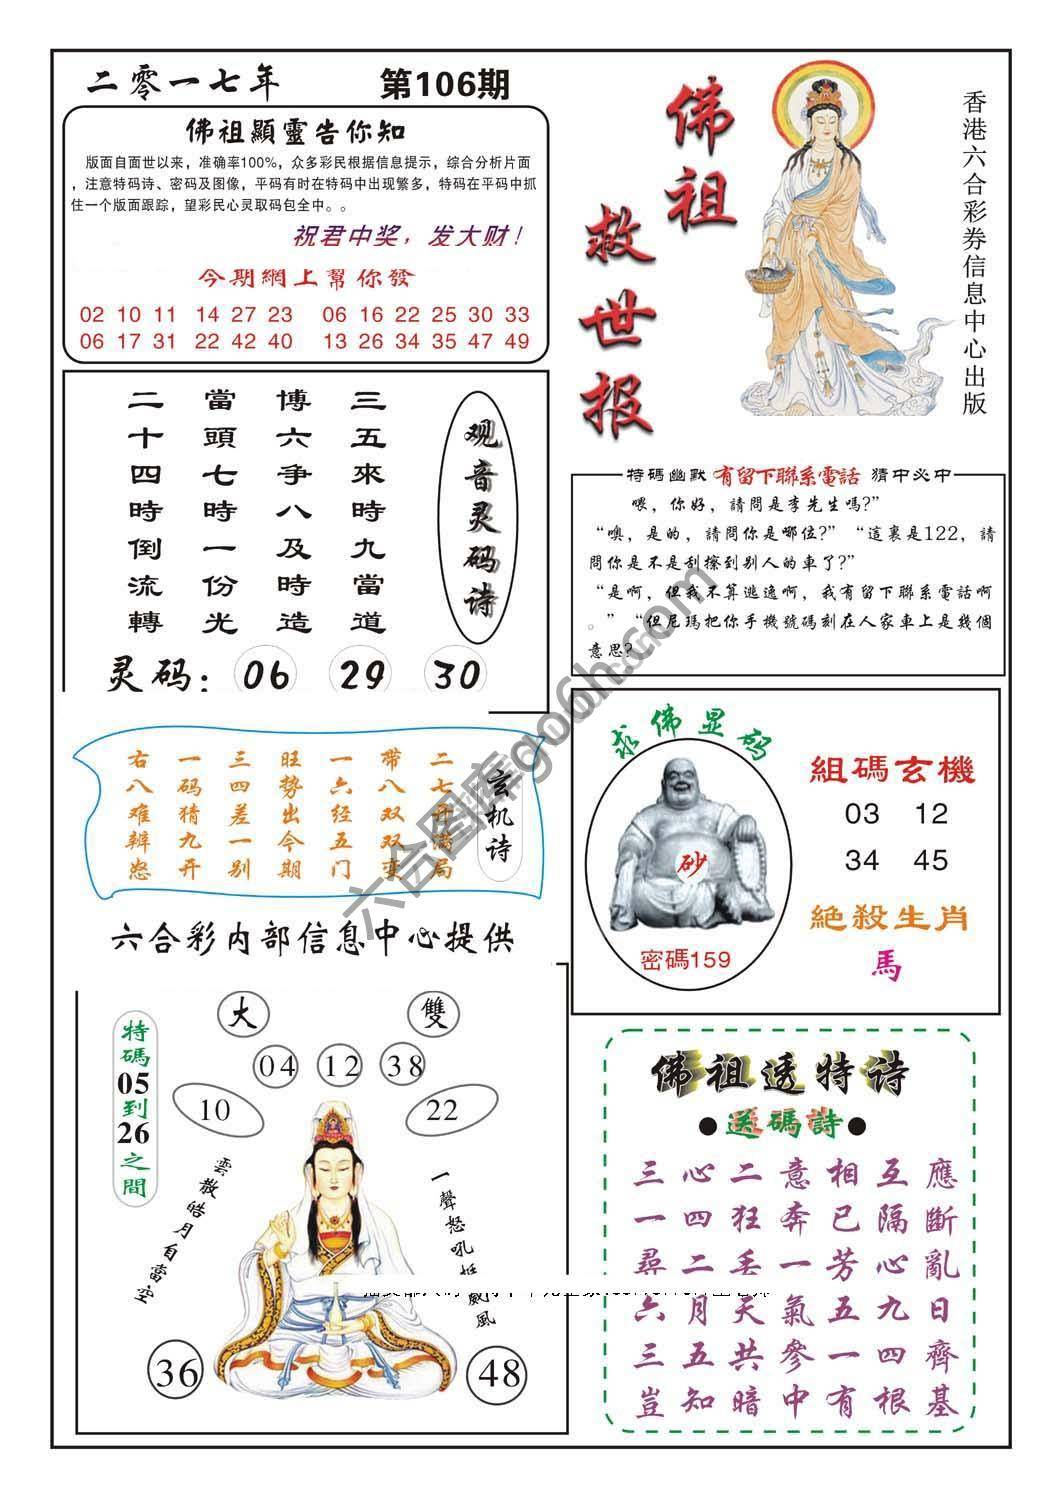 二零一七年 第106期
佛祖顯靈告你知
版面自面世以来，准确率100%，众多彩民根据信息提示，综合分析片面
，注意特码诗、密码及图像，平码有时在特码中出现繁多，特码在平码中抓
住一个版面跟踪，望彩民心灵取码包全中。。
祝君中奖，发大财！
今期網上幫你發
02 10 11 14 27 23 06 16 22 25 30 33
06 17 31 22 42 40 13 26 34 35 47 49
佛祖
救世报
香港六合彩券信息中心出版
观音灵码诗
三五來時九當道
博六爭八及時造
當頭七時一份光
二十四時倒流轉
灵码：06 29 30
特碼幽默 有留下聯系電話 猜中必中
喂，你好，請問是李先生嗎?”
“噢，是的，請問你是哪位?”“這裏是122，請
問你是不是刮擦到别人的車了?”
“是啊，但我不算逃逸啊，我有留下聯系電話啊
。”“但尼瑪把你手機號碼刻在人家車上是幾個
意思?
玄机诗
二七开满局
带八双双变
一六经五门
旺势出今期
三四差一别
一码猜九开
右八难辨愁
六合彩内部信息中心提供
求佛显码
砂
密碼159
組碼玄機
03 12
34 45
絕殺生肖
馬
特碼05到26之間
大 雙
04 12 38
10 22
雲散皓月自當空
36 48
佛祖透特诗
●送碼詩●
三心二意相互應
一四狂奔已隔斷
尋二丢一芳心亂
六月天氣五九日
三五共參一四齊
豈知暗中有根基
六合图库go6h.com